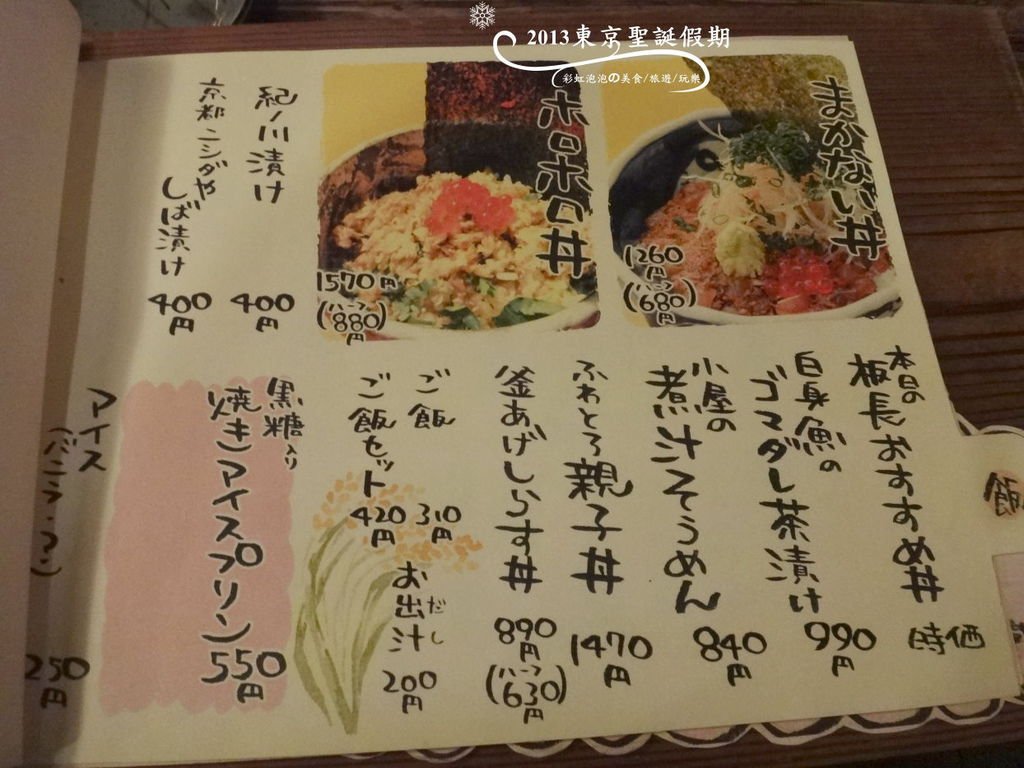 2013東京聖誕假期
彩虹泡泡の美食/旅遊/玩樂
まかない丼
1260円
(ハーフ680円)
ホロホロ丼
1570円
(ハーフ880円)
紀ノ川漬け
400円
京都ニシダや
しば漬け
400円
本日の
板長おすすめ丼
時価
白身魚の
ゴマダレ茶漬け
990円
小屋の
煮汁そうめん
840円
ふわとろ親子丼
1470円
釜あげしらす丼
890円
(ハーフ630円)
ご飯
310円
ご飯セット
420円
お出汁
だし
200円
黒糖入り
焼きマイスプリン
550円
マイス
250円
飯